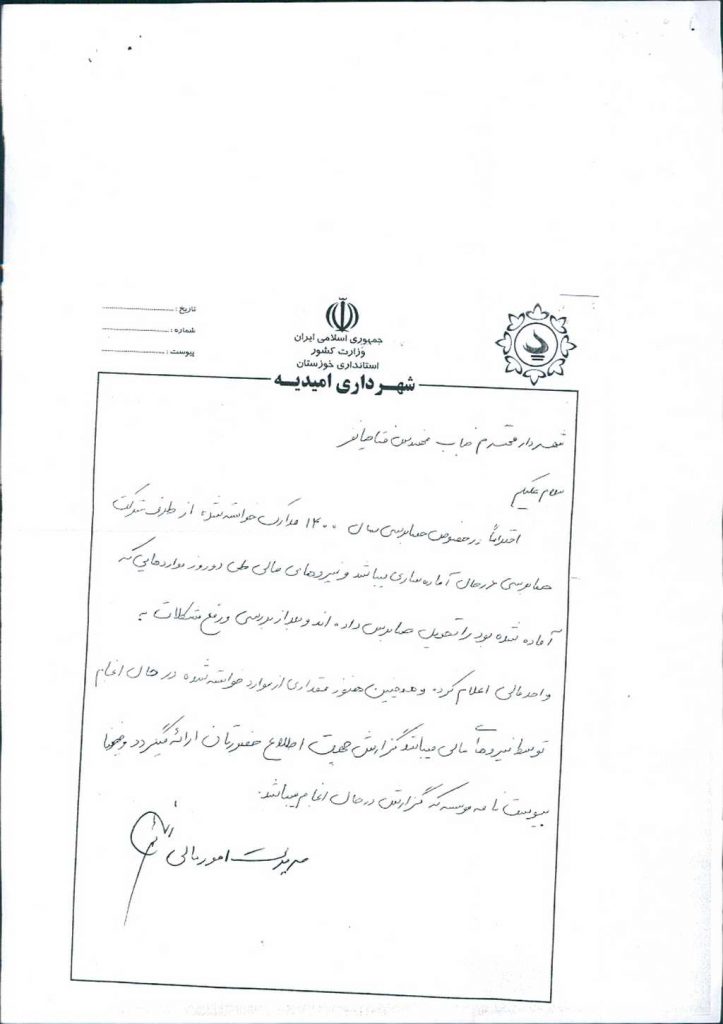 تاریخ :
شماره :
پیوست :
جمهوری اسلامی ایران
وزارت کشور
استانداری خوزستان
شهرداری امیدیه
شهردار محترم جناب مهندس
سلام علیکم
احتراماً در خصوص حسابرسی سال ۱۴۰۰ مدارک خواسته شده از طرف شرکت
حسابرسی در حال آماده سازی میباشد و نیروهای مالی طی دو روز مواردهایی که
آماده شده بود را تحویل حسابرس داده اند و بعد از بررسی و رفع مشکلات به
واحد مالی اعلام کرده و همچنین هنوز مقداری از موارد خواسته شده در حال انجام
توسط نیروهای مالی میباشد گزارش جهت اطلاع حضورتان ارائه میگردد و ضمنا
پیوست نامه موسسه که گزارش در حال انجام میباشد.
مدیریت امور مالی